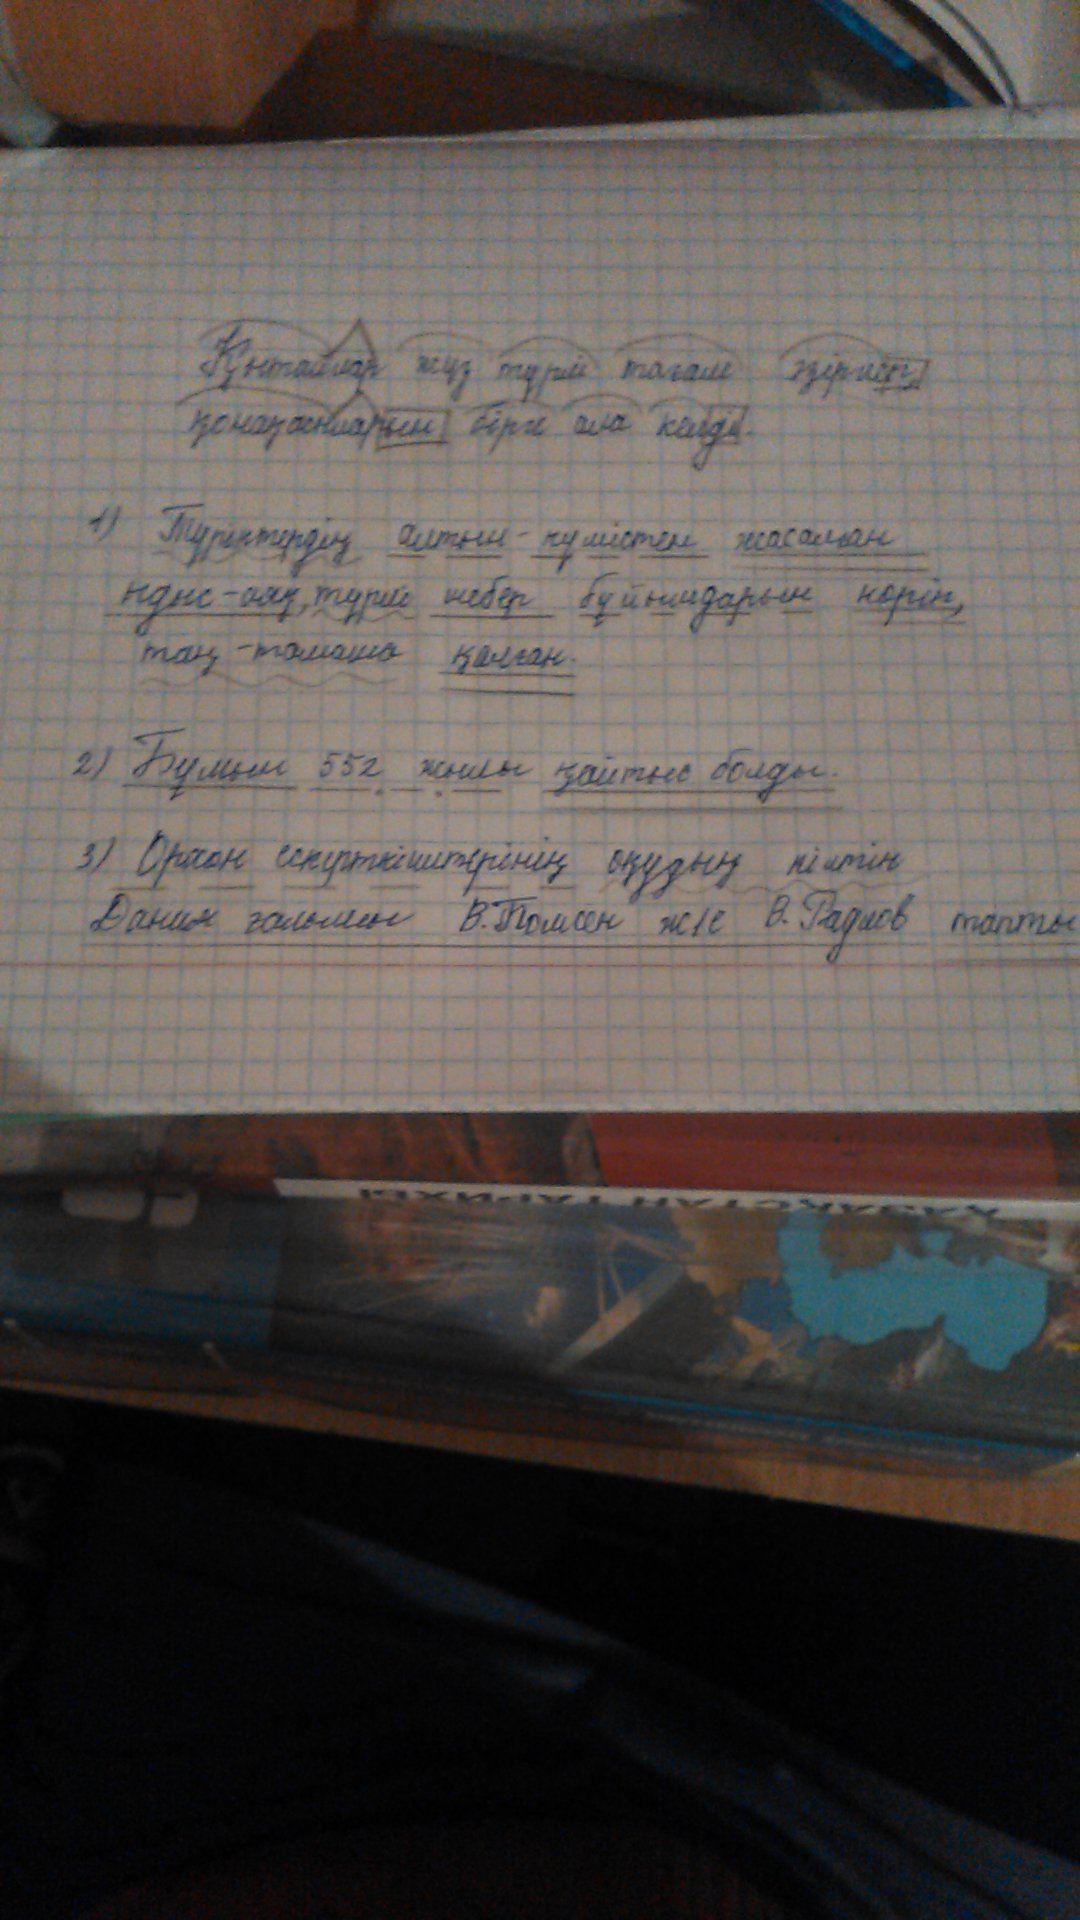 Қытайлар жүз түрлі тағам әзірлеп,
қонақасыларын бірге ала келді.
1) Түріктердің алтын-күмістен жасалған
ыдыс-аяқ, түрлі шебер бұйымдарын көріп,
таң-тамаша қалған.
2) Бумын 552 жылы қайтыс болды.
3) Орхон ескерткіштерінің оқудың кілтін
Дания ғалымы В.Томсен ж/е В. Радлов тапты
ҚАЗАҚСТАН ТАРИХЫ